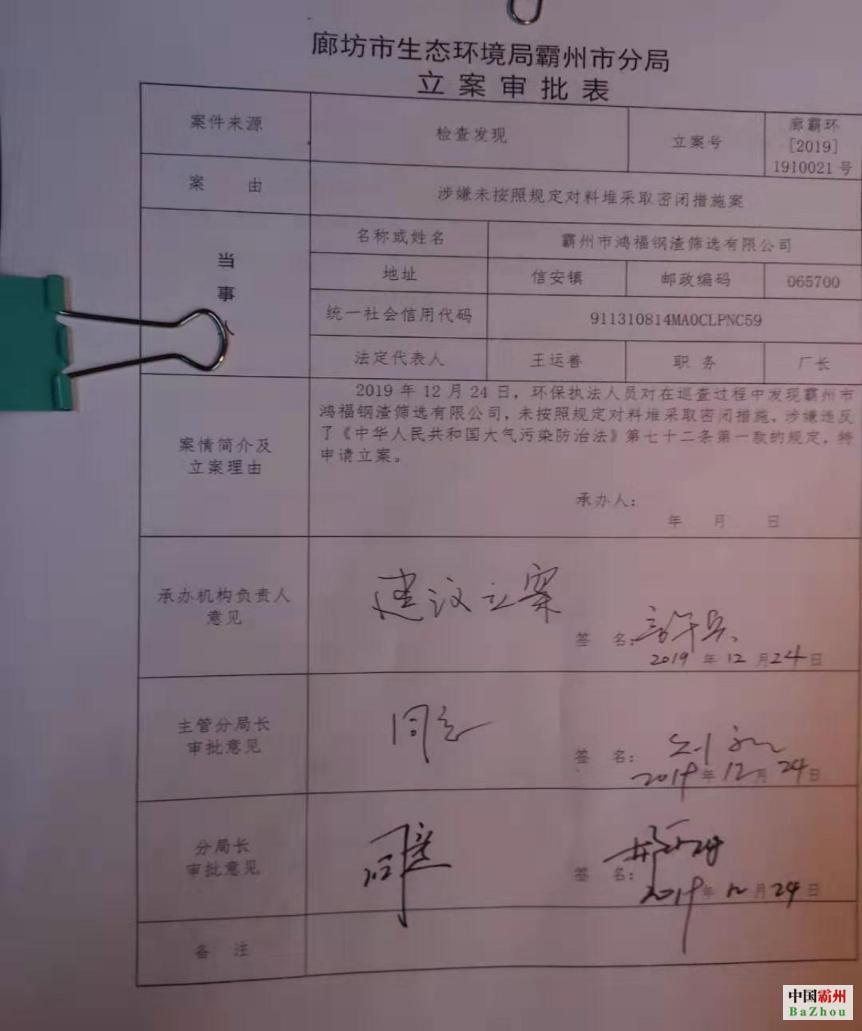 廊坊市生态环境局霸州市分局
立案审批表
案件来源 检查发现 立案号 廊霸环[2019]1910021号
案由 涉嫌未按照规定对料堆采取密闭措施案
当事人
名称或姓名 霸州市鸿福钢渣筛选有限公司
地址 信安镇 邮政编码 065700
统一社会信用代码 911310814MA0CLPNC59
法定代表人 王运善 职务 厂长
案情简介及
立案理由
2019年12月24日，环保执法人员对在巡查过程中发现霸州市
鸿福钢渣筛选有限公司，未按照规定对料堆采取密闭措施，涉嫌违反
了《中华人民共和国大气污染防治法》第七十二条第一款的规定，特
申请立案。
承办人：
年 月 日
承办机构负责人
意见
建议立案
签名：
2019年12月24日
主管分局长
审批意见
同意
签名：
2019年12月24日
分局长
审批意见
同意
签名：
2019年12月24日
备注
中国霸州
BaZhou